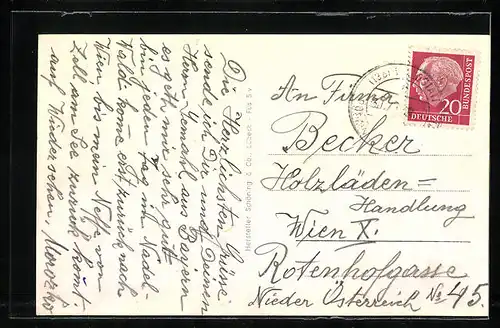 Die Herzlichsten Grüsse
sende ich Dir und Deinen
Herrn Gemahl aus Bayern
es geht mir sehr gut
bin jeden Tag im Nadel-
Wald kome erst zurück nach
Wien bis mein Neffe von
Zell am See zurück komt.
auf Wiedersehen,
Hersteller: Schöning & Co., Lübeck
DEUTSCHE
BUNDESPOST
20
An Firma
Becker
Holzläden=
Handlung
Wien X.
Rotenhofgasse
Nieder Österreich No 45.